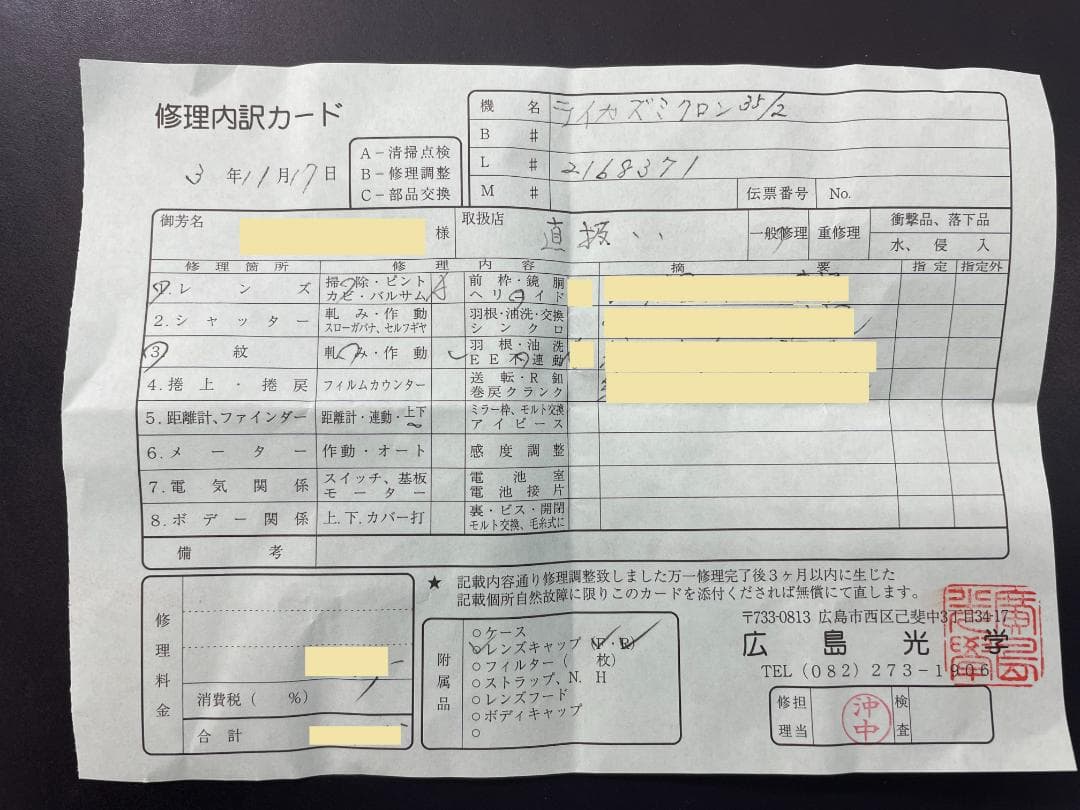 修理内訳カード
3 年 11 月 17 日
A－清掃点検
B－修理調整
C－部品交換
機 名 ライカズミクロン 35/2
B ♯
L ♯ 2168371
M ♯ 伝票番号 No.
御芳名 様 取扱店 直扱い 一般修理 重修理 衝撃品、落下品
水、 侵 入
修 理 箇 所 修 理 内 容 摘 要 指 定 指定外
1. レ ン ズ 掃 除・ピント
カビ・バルサム A 前 枠・鏡 胴
ヘリコイド
2. シャッター 軋 み・作 動
スローガバナ、セルフギヤ 羽根・油洗・交換
シ ン ク ロ
3 紋 軋 み・作 動 羽 根・油 洗
E E 不 連 動
4. 捲 上 ・ 捲 戻 フィルムカウンター 送 転・R 釦
巻戻クランク
5. 距離計、ファインダー 距離計・連動・上下 ミラー枠、モルト交換
ア イ ピ ー ス
6. メ ー タ ー 作動・オート 感 度 調 整
7. 電 気 関 係 スイッチ、基板
モ ー タ ー 電 池 室
電 池 接 片
8. ボ デ ー 関 係 上. 下. カバー打 裏・ビス・開閉
モルト交換、毛糸式に
備 考
修理料金
消費税（ %）
合 計
★ 記載内容通り修理調整致しました万一修理完了後３ヶ月以内に生じた
記載個所自然故障に限りこのカードを添付くだされば無償にて直します。
附属品
○ケース
○レンズキャップ（F・R）
○フィルター（ 枚）
○ストラップ、N. H
○レンズフード
○ボディキャップ
○
〒733-0813 広島市西区己斐中3丁目34-17
広 島 光 学
TEL (082) 273-1906
修理担当 沖中 検査